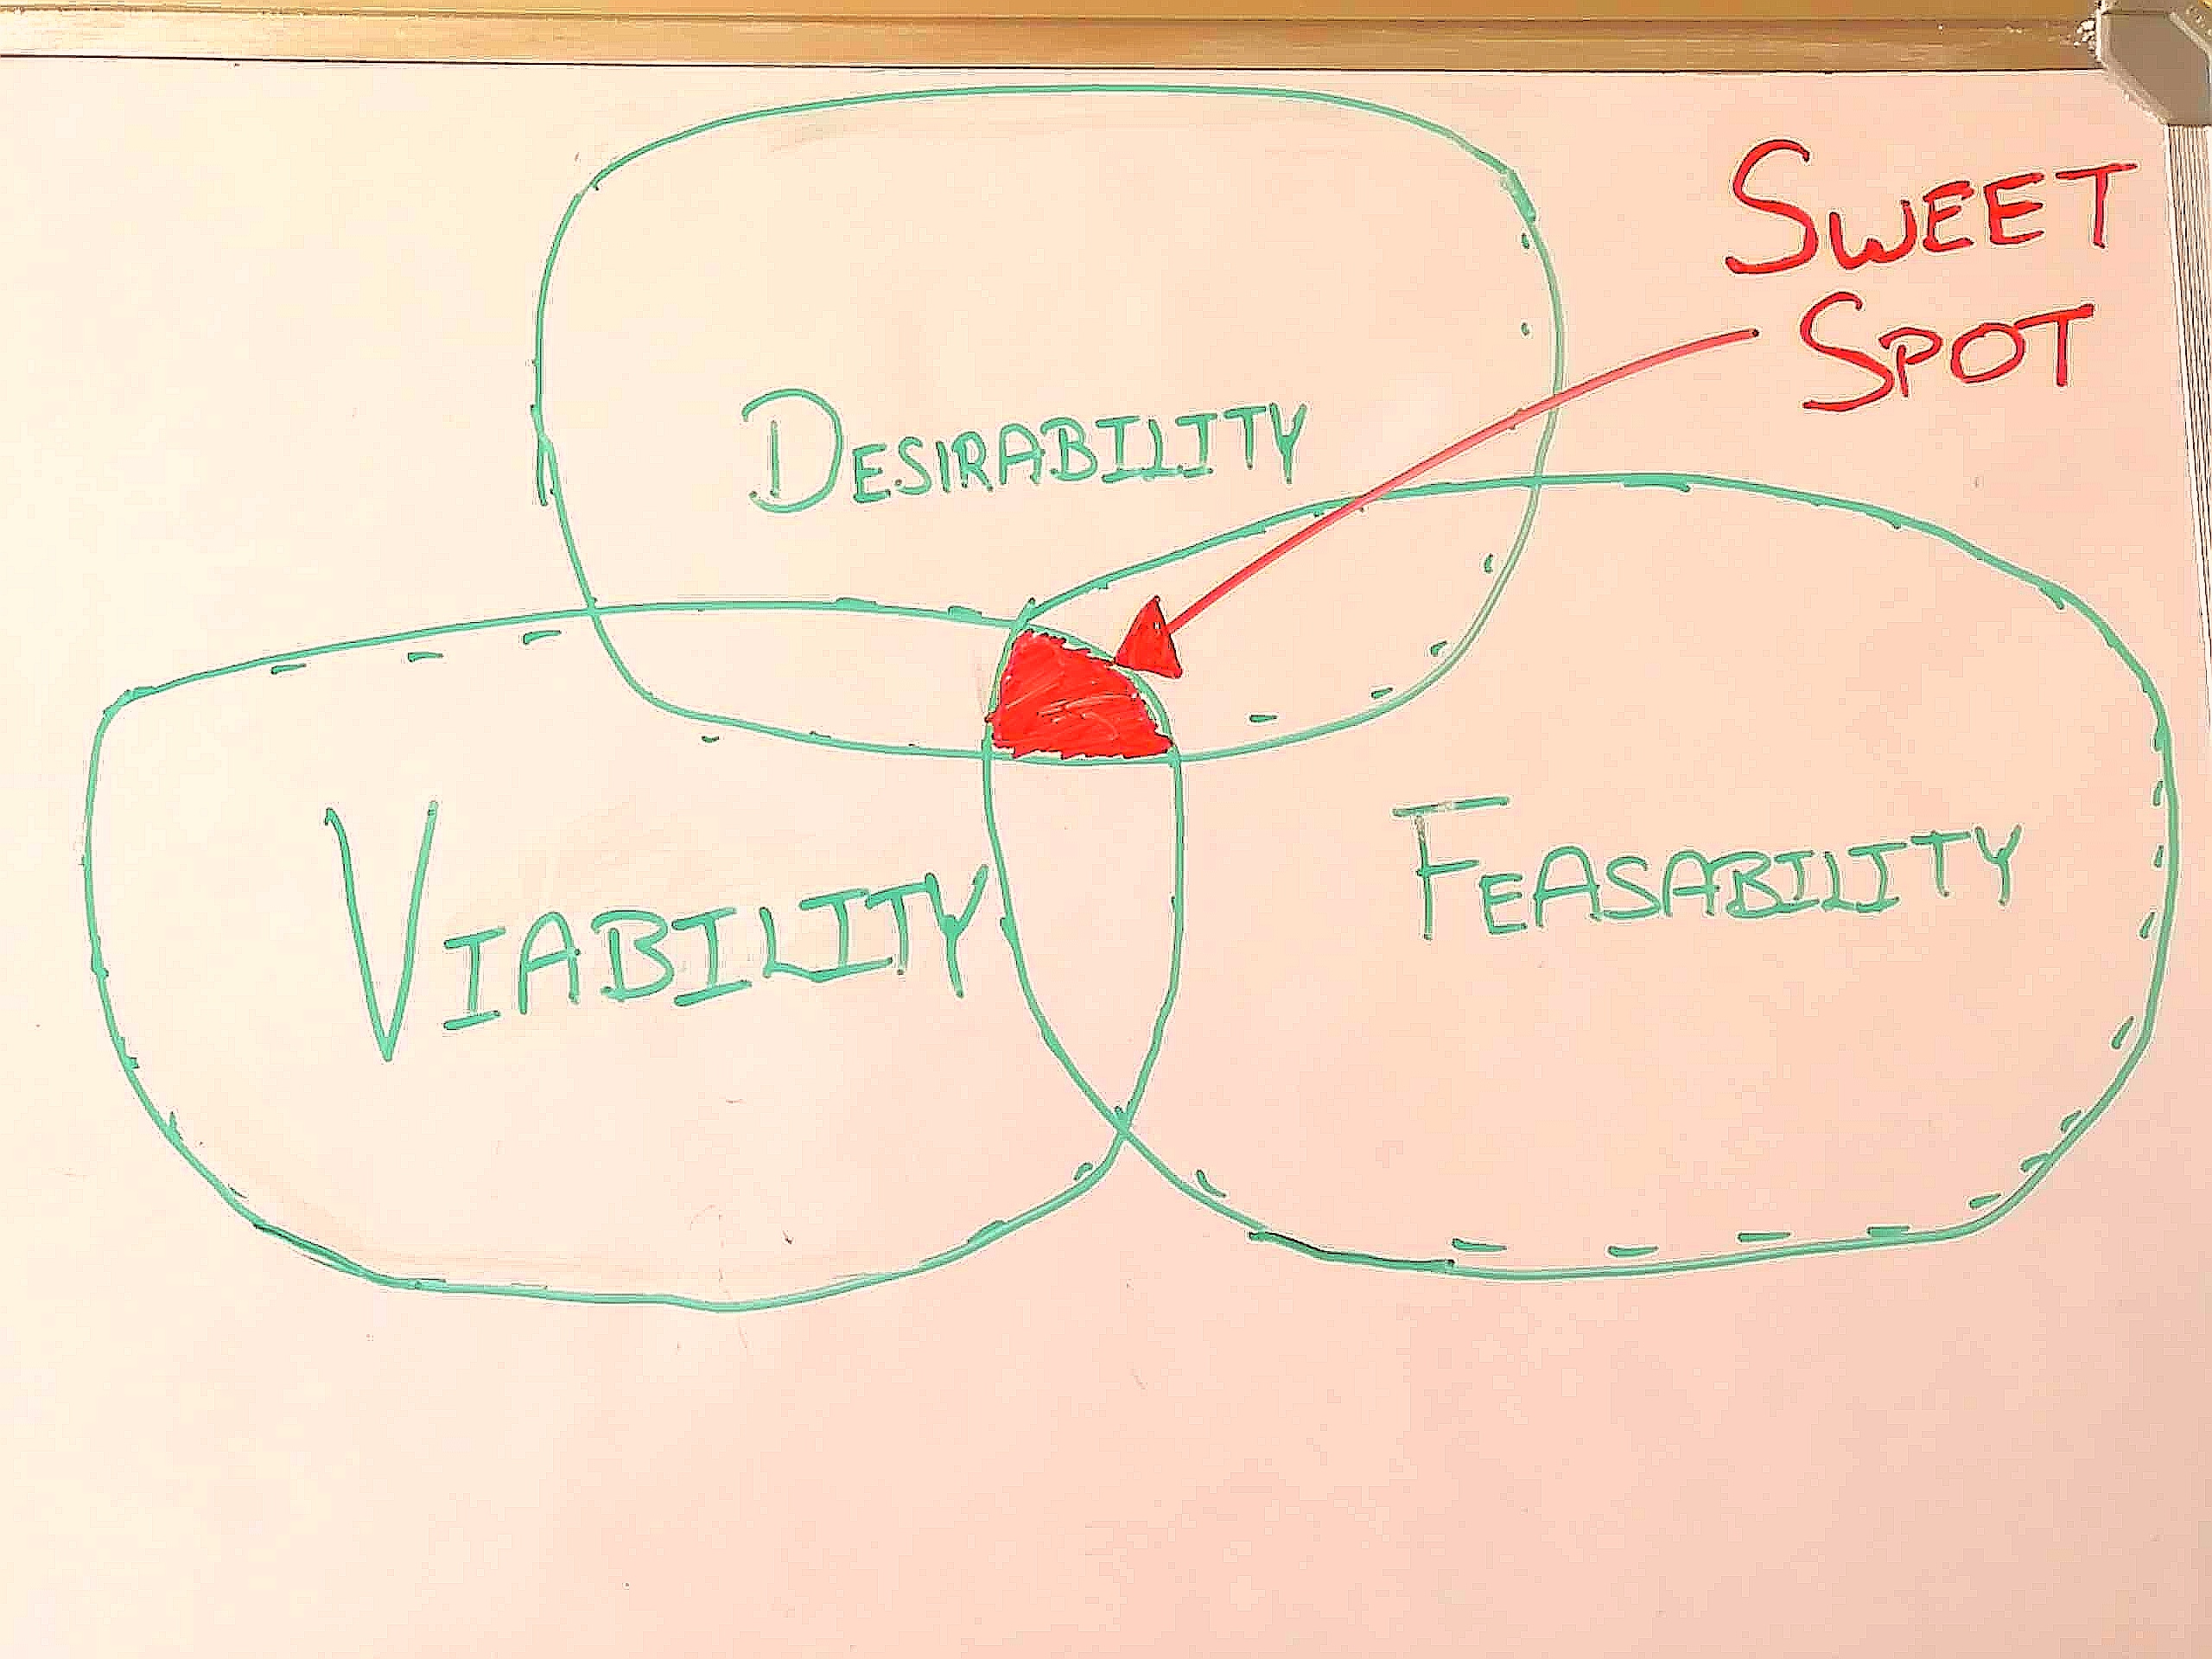 SWEET
SPOT
DESIRABILITY
VIABILITY
FEASABILITY